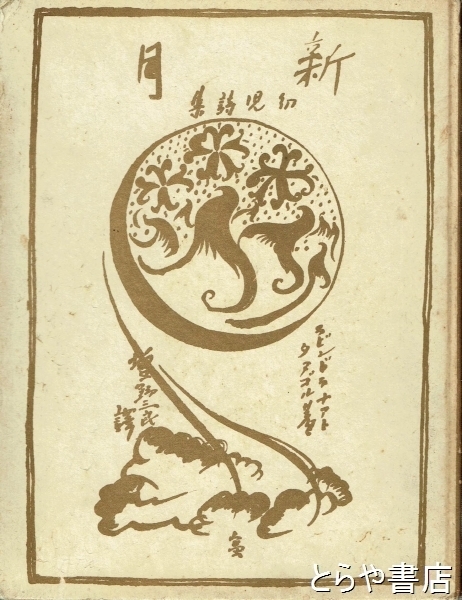 新月
幼児詩集
ラビンドラナアト
タアゴル著
増野三良
譯
とらや書店